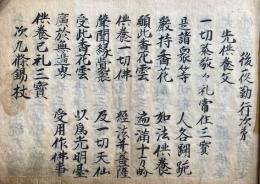 後夜勤行次第
先供養文
一切恭敬々礼常住三寳
是諸衆等 人各䠒跪
嚴持香花 如法供養
願此香花雲 遍滿十方界
供養一切佛 経法并菩薩
聲聞縁覺衆 及一切天仙
受此香花雲 以爲光明臺
廣於無邊界 受用作佛事
供養已礼三寳
次九條錫杖